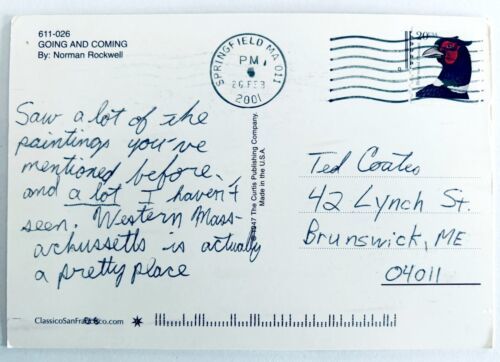 611-026
GOING AND COMING
By: Norman Rockwell
SPRINGFIELD MA 011
PM
26 FEB
2001
20
Saw a lot of the
paintings you've
mentioned before,
and a lot I haven't
seen. Western Mass-
achussetts is actually
a pretty place
©1947 The Curtis Publishing Company.
Made in the U.S.A.
Ted Coates
42 Lynch St.
Brunswick, ME
04011
ClassicoSanFrancisco.com